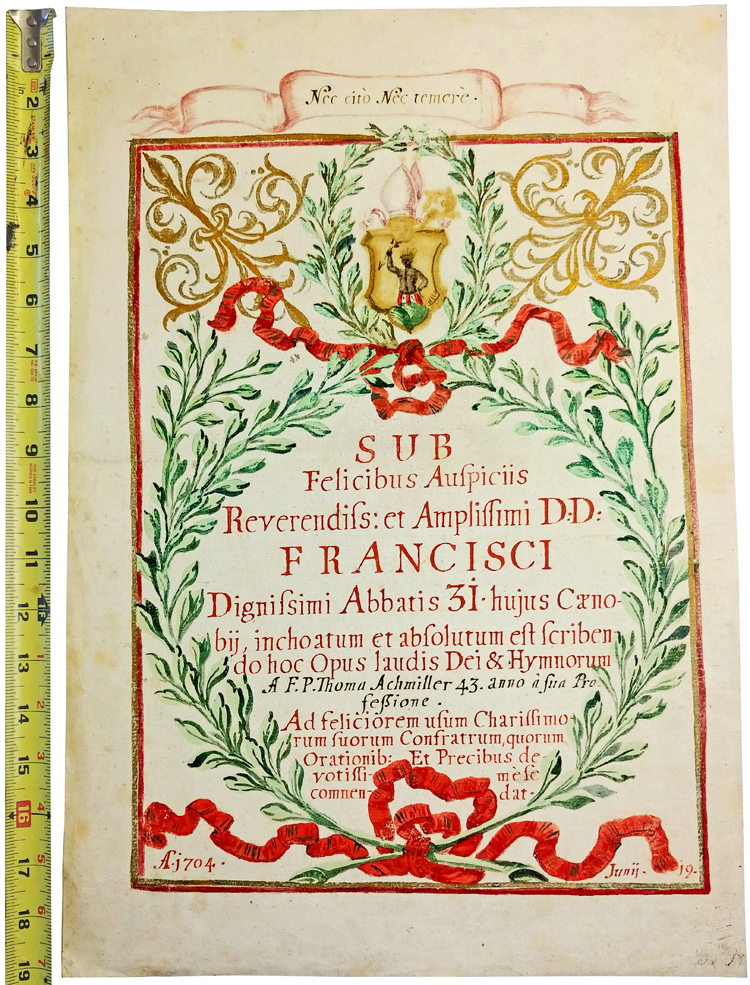 Nec citò Nec temerè.
SUB
Felicibus Auſpiciis
Reverendiſs: et Ampliſſimi D:D:
FRANCISCI
Digniſſimi Abbatis 31. hujus Cæno-
bij, inchoatum et abſolutum eſt ſcriben
do hoc Opus laudis Dei & Hymnorum
A F. P. Thoma Achmiller 43. anno à ſua Pro
feſſione.
Ad feliciorem uſum Chariſſimo-
rum ſuorum Confratrum, quorum
Orationib: Et Precibus de
votiſſi- mè ſe
commen- dat.
A. 1704. Junij. 19.
2
3
4
5
6
7
8
9
10
11
12
13
14
15
16
17
18
19